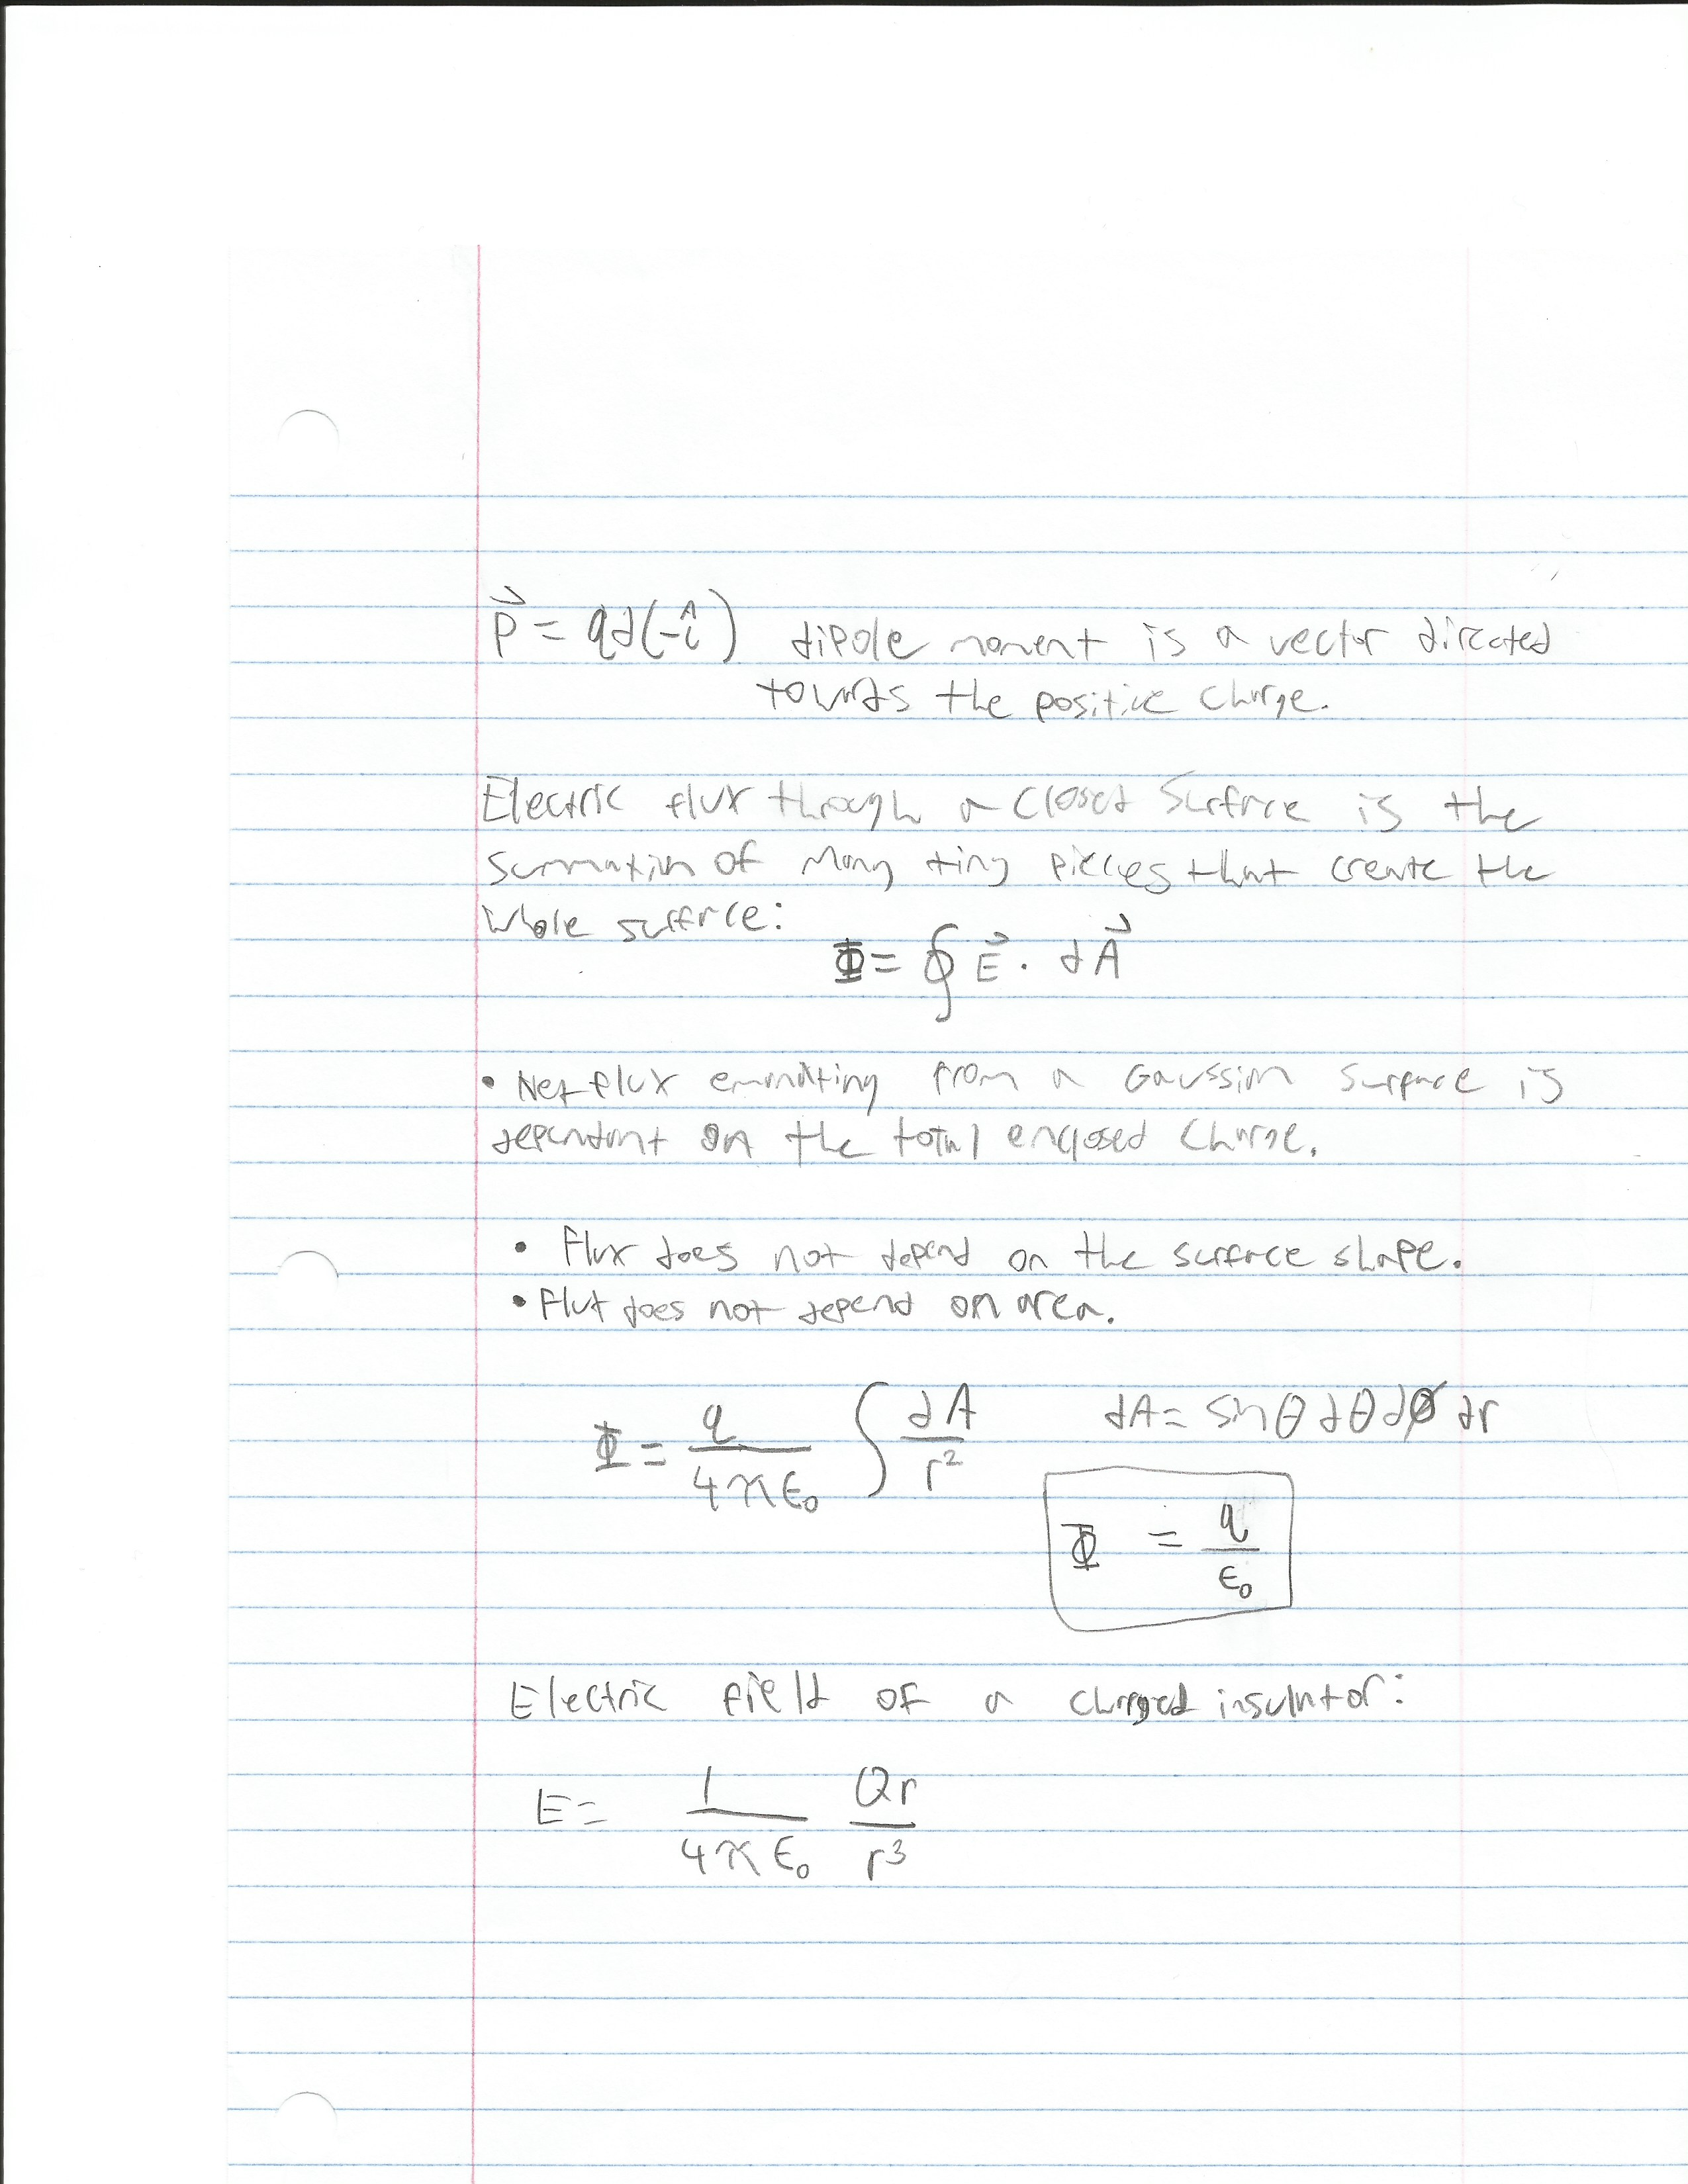 p⃗ = qd(-î) dipole moment is a vector directed
towards the positive charge.
Electric flux through a closed surface is the
summation of many tiny pieces that create the
whole surface:
Φ = ∮ E⃗ · dA⃗
• Net flux emanating from a Gaussian surface is
dependant on the total enclosed charge.
• Flux does not depend on the surface shape.
• Flux does not depend on area.
Φ = q/4πϵ₀ ∫ dA/r² dA = sinθ dθ dø dr
Φ = q/ϵ₀
Electric field of a charged insulator:
E = 1/4πϵ₀ Qr/r³